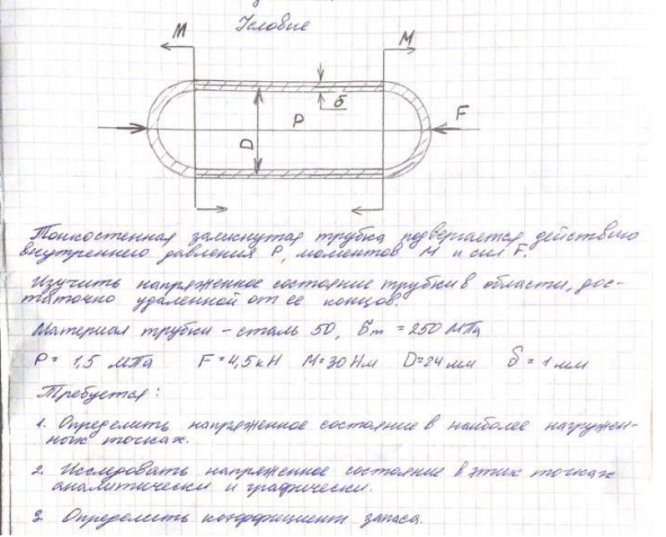 Условие
M M
δ
P F
D
Тонкостенная замкнутая трубка подвергается действию
внутреннего давления P, моментов M и сил F.
Изучить напряженное состояние трубки в области, дос-
таточно удаленной от ее концов.
Материал трубки - сталь 50, σт = 250 МПа
P = 1,5 МПа F = 4,5 кН M = 30 Нм D = 24 мм δ = 1 мм
Требуется:
1. Определить напряженное состояние в наиболее нагружен-
ных точках.
2. Исследовать напряженное состояние в этих точках
аналитически и графически.
3. Определить коэффициент запаса.